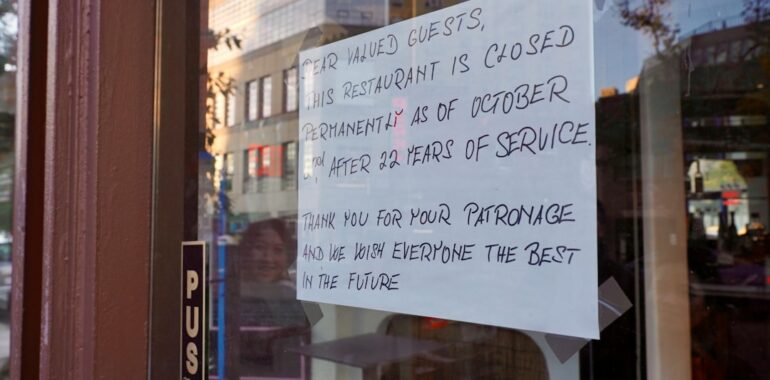 DEAR VALUED GUESTS,
THIS RESTAURANT IS CLOSED
PERMANENTLY AS OF OCTOBER
AFTER 22 YEARS OF SERVICE.
THANK YOU FOR YOUR PATRONAGE
AND WE WISH EVERYONE THE BEST
IN THE FUTURE
PUS